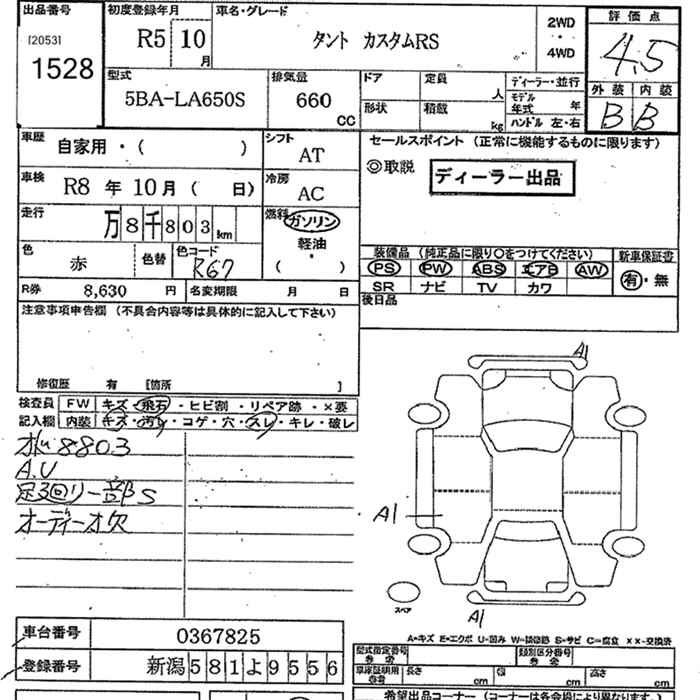 出品番号 初度登録年月 車名・グレード 2WD 評価点
[2053] R5 10月 タント カスタムRS ・ 4.5
1528 4WD
型式 排気量 ドア 定員 ディーラー・並行 外装 内装
5BA-LA650S 660 CC 人 モデル年式 年 B B
形状 積載 kg ハンドル 左・右
車歴 自家用・( ) シフト AT セールスポイント (正常に機能するものに限ります)
◎取説 ディーラー出品
車検 R8 年 10 月 ( 日) 冷房 AC
走行 万 8 千 8 0 3 km 燃料 ガソリン
軽油・
( )
色 赤 色替 色コード R67
装備品 (純正品に限り○をつけてください) 新車保証書
PS PW ABS エアB AW 有・無
SR ナビ TV カワ
R券 8,630 円 名変期限 月 日 後日品
注意事項申告欄 (不具合内容等は具体的に記入して下さい)
修復歴 有 [箇所 ]
検査員 FW キズ・飛石・ヒビ割・リペア跡・×要
記入欄 内装 キズ・汚レ・コゲ・穴・スレ・キレ・破レ
8803
A.U
足回り一部S
オーディオ欠
A1
A1
A1
スペア
A=キズ E=エクボ U=凹み W=補修跡 S=サビ C=腐食 ××=交換済
車台番号 0367825
登録番号 新潟 581 よ 9556
型式指定番号 参考 類別区分番号 参考
車庫証明用 参考 長さ cm 幅 cm 高さ cm
希望出品コーナー (コーナーは各会場により異なります。)